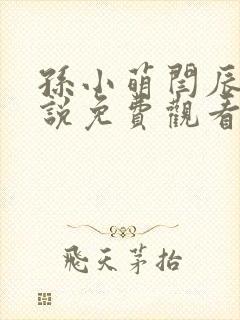 孫小萌閆辰
說免費觀看
飛天茅抬